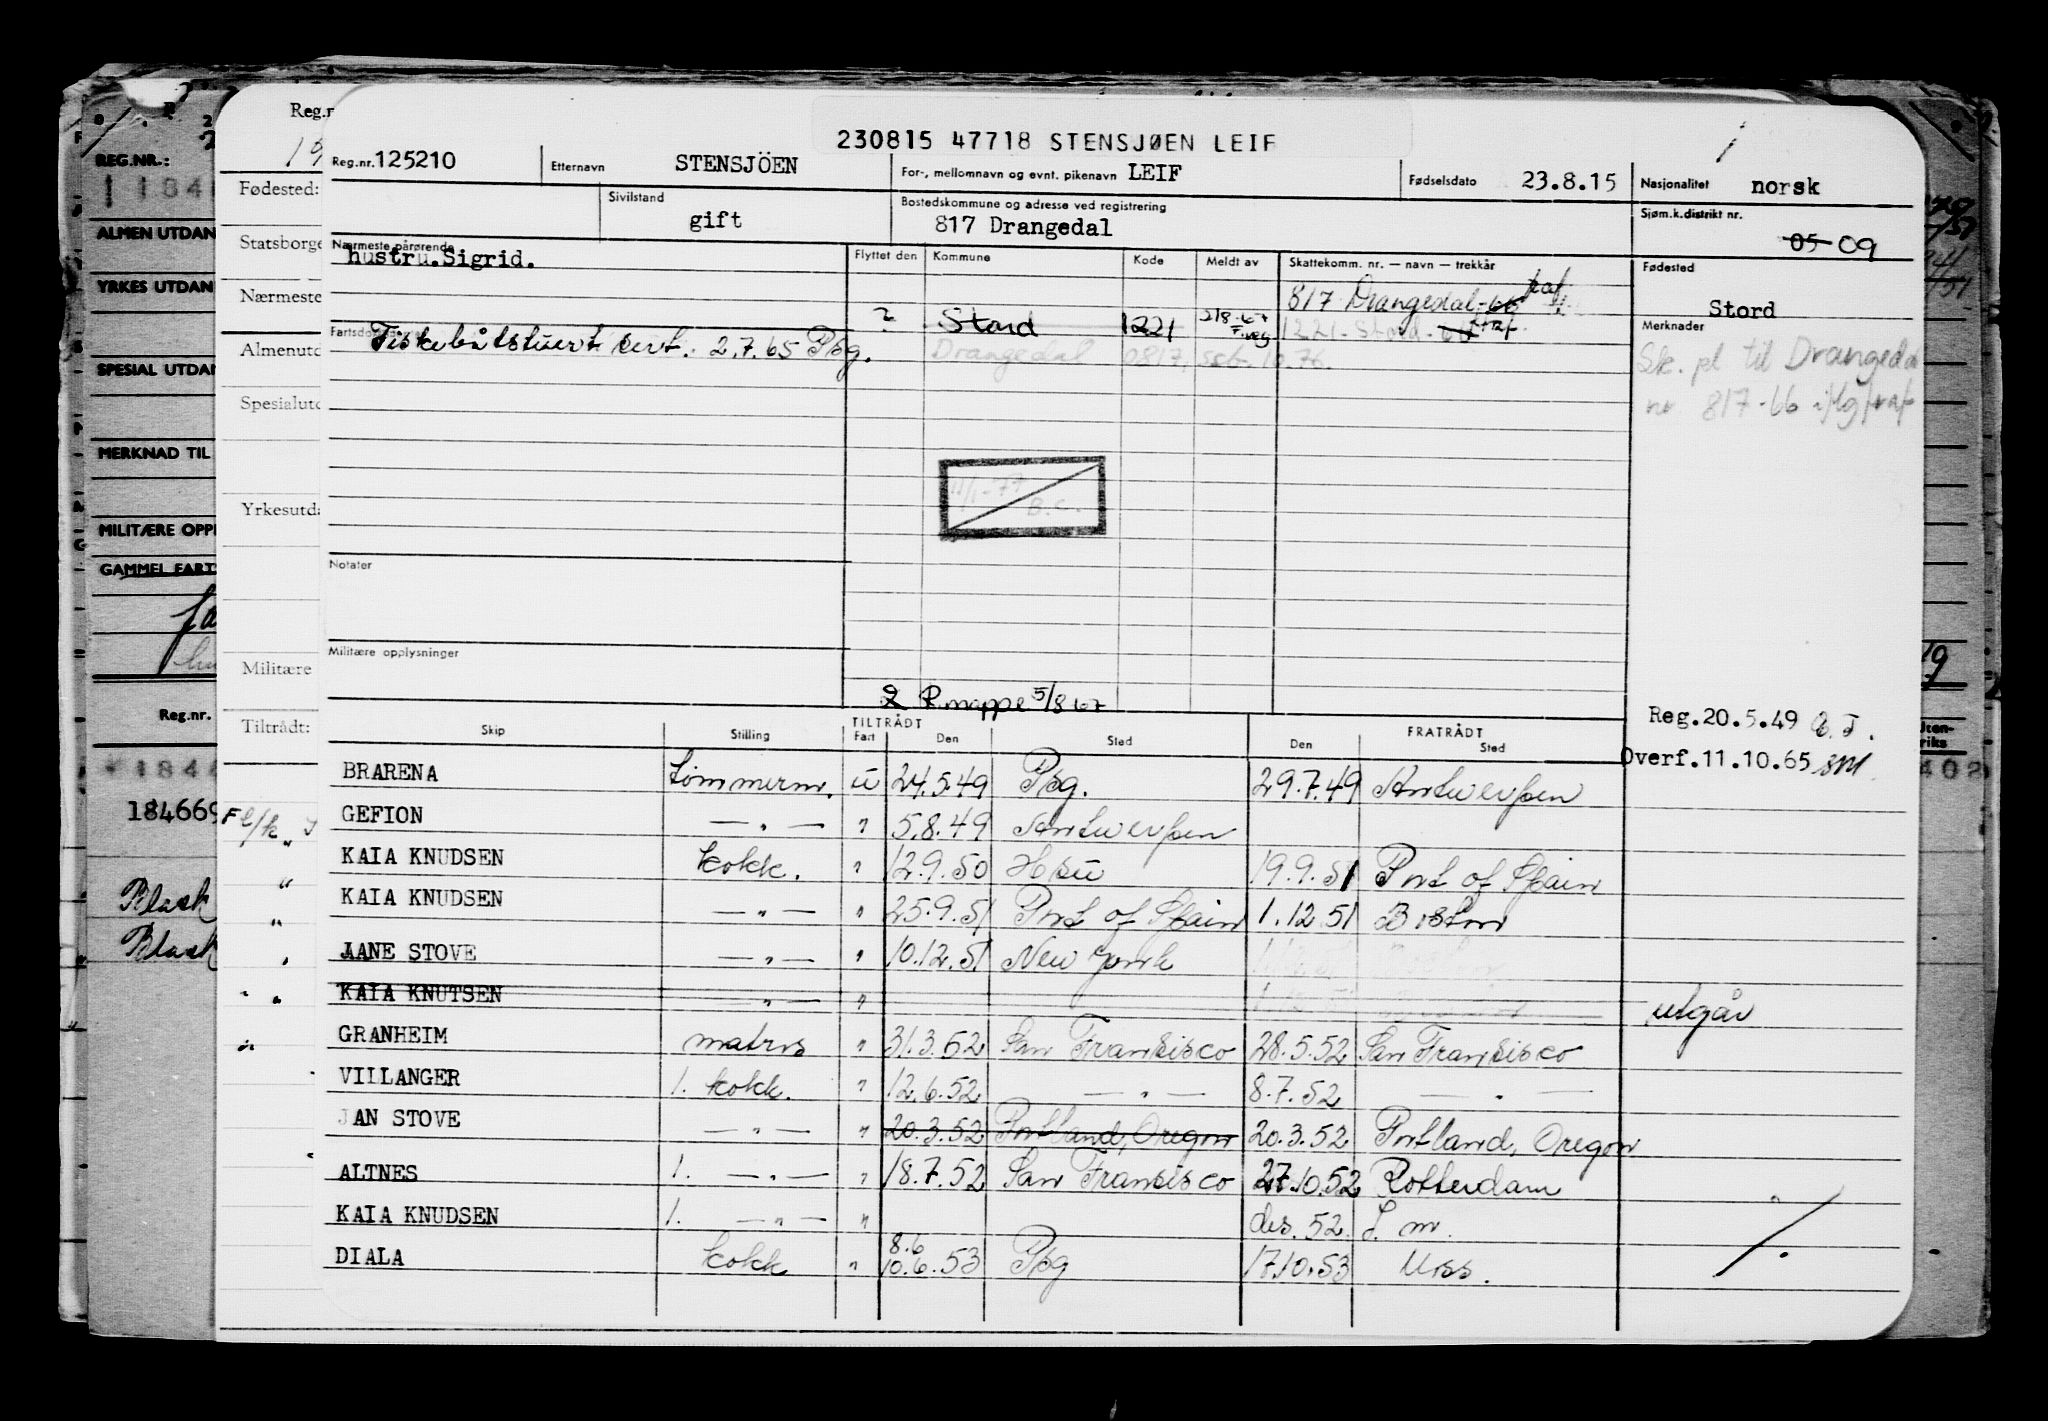 230815 47718 STENSJØEN LEIF
Reg.nr. 125210 Etternavn STENSJÖEN For-, mellomnavn og evnt. pikenavn LEIF Fødselsdato 23.8.15 Nasjonalitet norsk
Sivilstand gift Bostedskommune og adresse ved registrering 817 Drangedal Sjøm.k.distrikt nr. 05 09
Nærmeste pårørende hustru.Sigrid. Flyttet den Kommune Kode Meldt av Skattekomm. nr. — navn — trekkår Fødested Stord
817 Drangedal-66
? Stord 1221 218-67 F.reg 1221-Stord-
Fiskebåtstuert sert. 2.7.65 Pbg.
Drangedal 0817, ssb. 10.76.
Merknader
Sk. pl til Drangedal
nr 817-66
11/1-77
B.C.
Notater
Militære opplysninger
P.mappe 5/8 67
Reg.20.5.49
Overf.11.10.65
Skip Stilling TILTRÅDT Fart Den Sted FRATRÅDT Den Sted
BRARENA tømmerm. u 24.5.49 Pbg. 29.7.49 Antwerpen
GEFION — " — " 5.8.49 Antwerpen
KAIA KNUDSEN kokk. " 12.9.50 Hsu 19.9.51 Port of Spain
KAIA KNUDSEN — " — " 25.9.51 Port of Spain 1.12.51 Boston
JANE STOVE — " — " 10.12.51 New York
KAIA KNUTSEN — " — " utgår
GRANHEIM matros " 31.3.52 San Fransisco 28.5.52 San Fransisco
VIILANGER 1. kokk. " 12.6.52 — " — 8.7.52 — " —
JAN STOVE — " — " 20.3.52 Portland, Oregon 20.3.52 Portland, Oregon
ALTNES 1. — " — " 18.7.52 San Fransisco 27.10.52 Rotterdam
KAIA KNUDSEN 1. — " — " des. 52 S. m.
DIALA kokk " 8.6 10.6.53 Pbg 17.10.53 Miss.
Reg.n
19
Fødested:
Statsborge
Nærmeste
Almenutd
Spesialutd
Yrkesutda
Militære
Tiltrådt:
REG.NR.:
ALMEN UTDAN
YRKES UTDAN
SPESIAL UTDAN
MERKNAD TIL
MILITÆRE OPPL
GAMMEL FART
Reg.nr.
184669
Black
Black